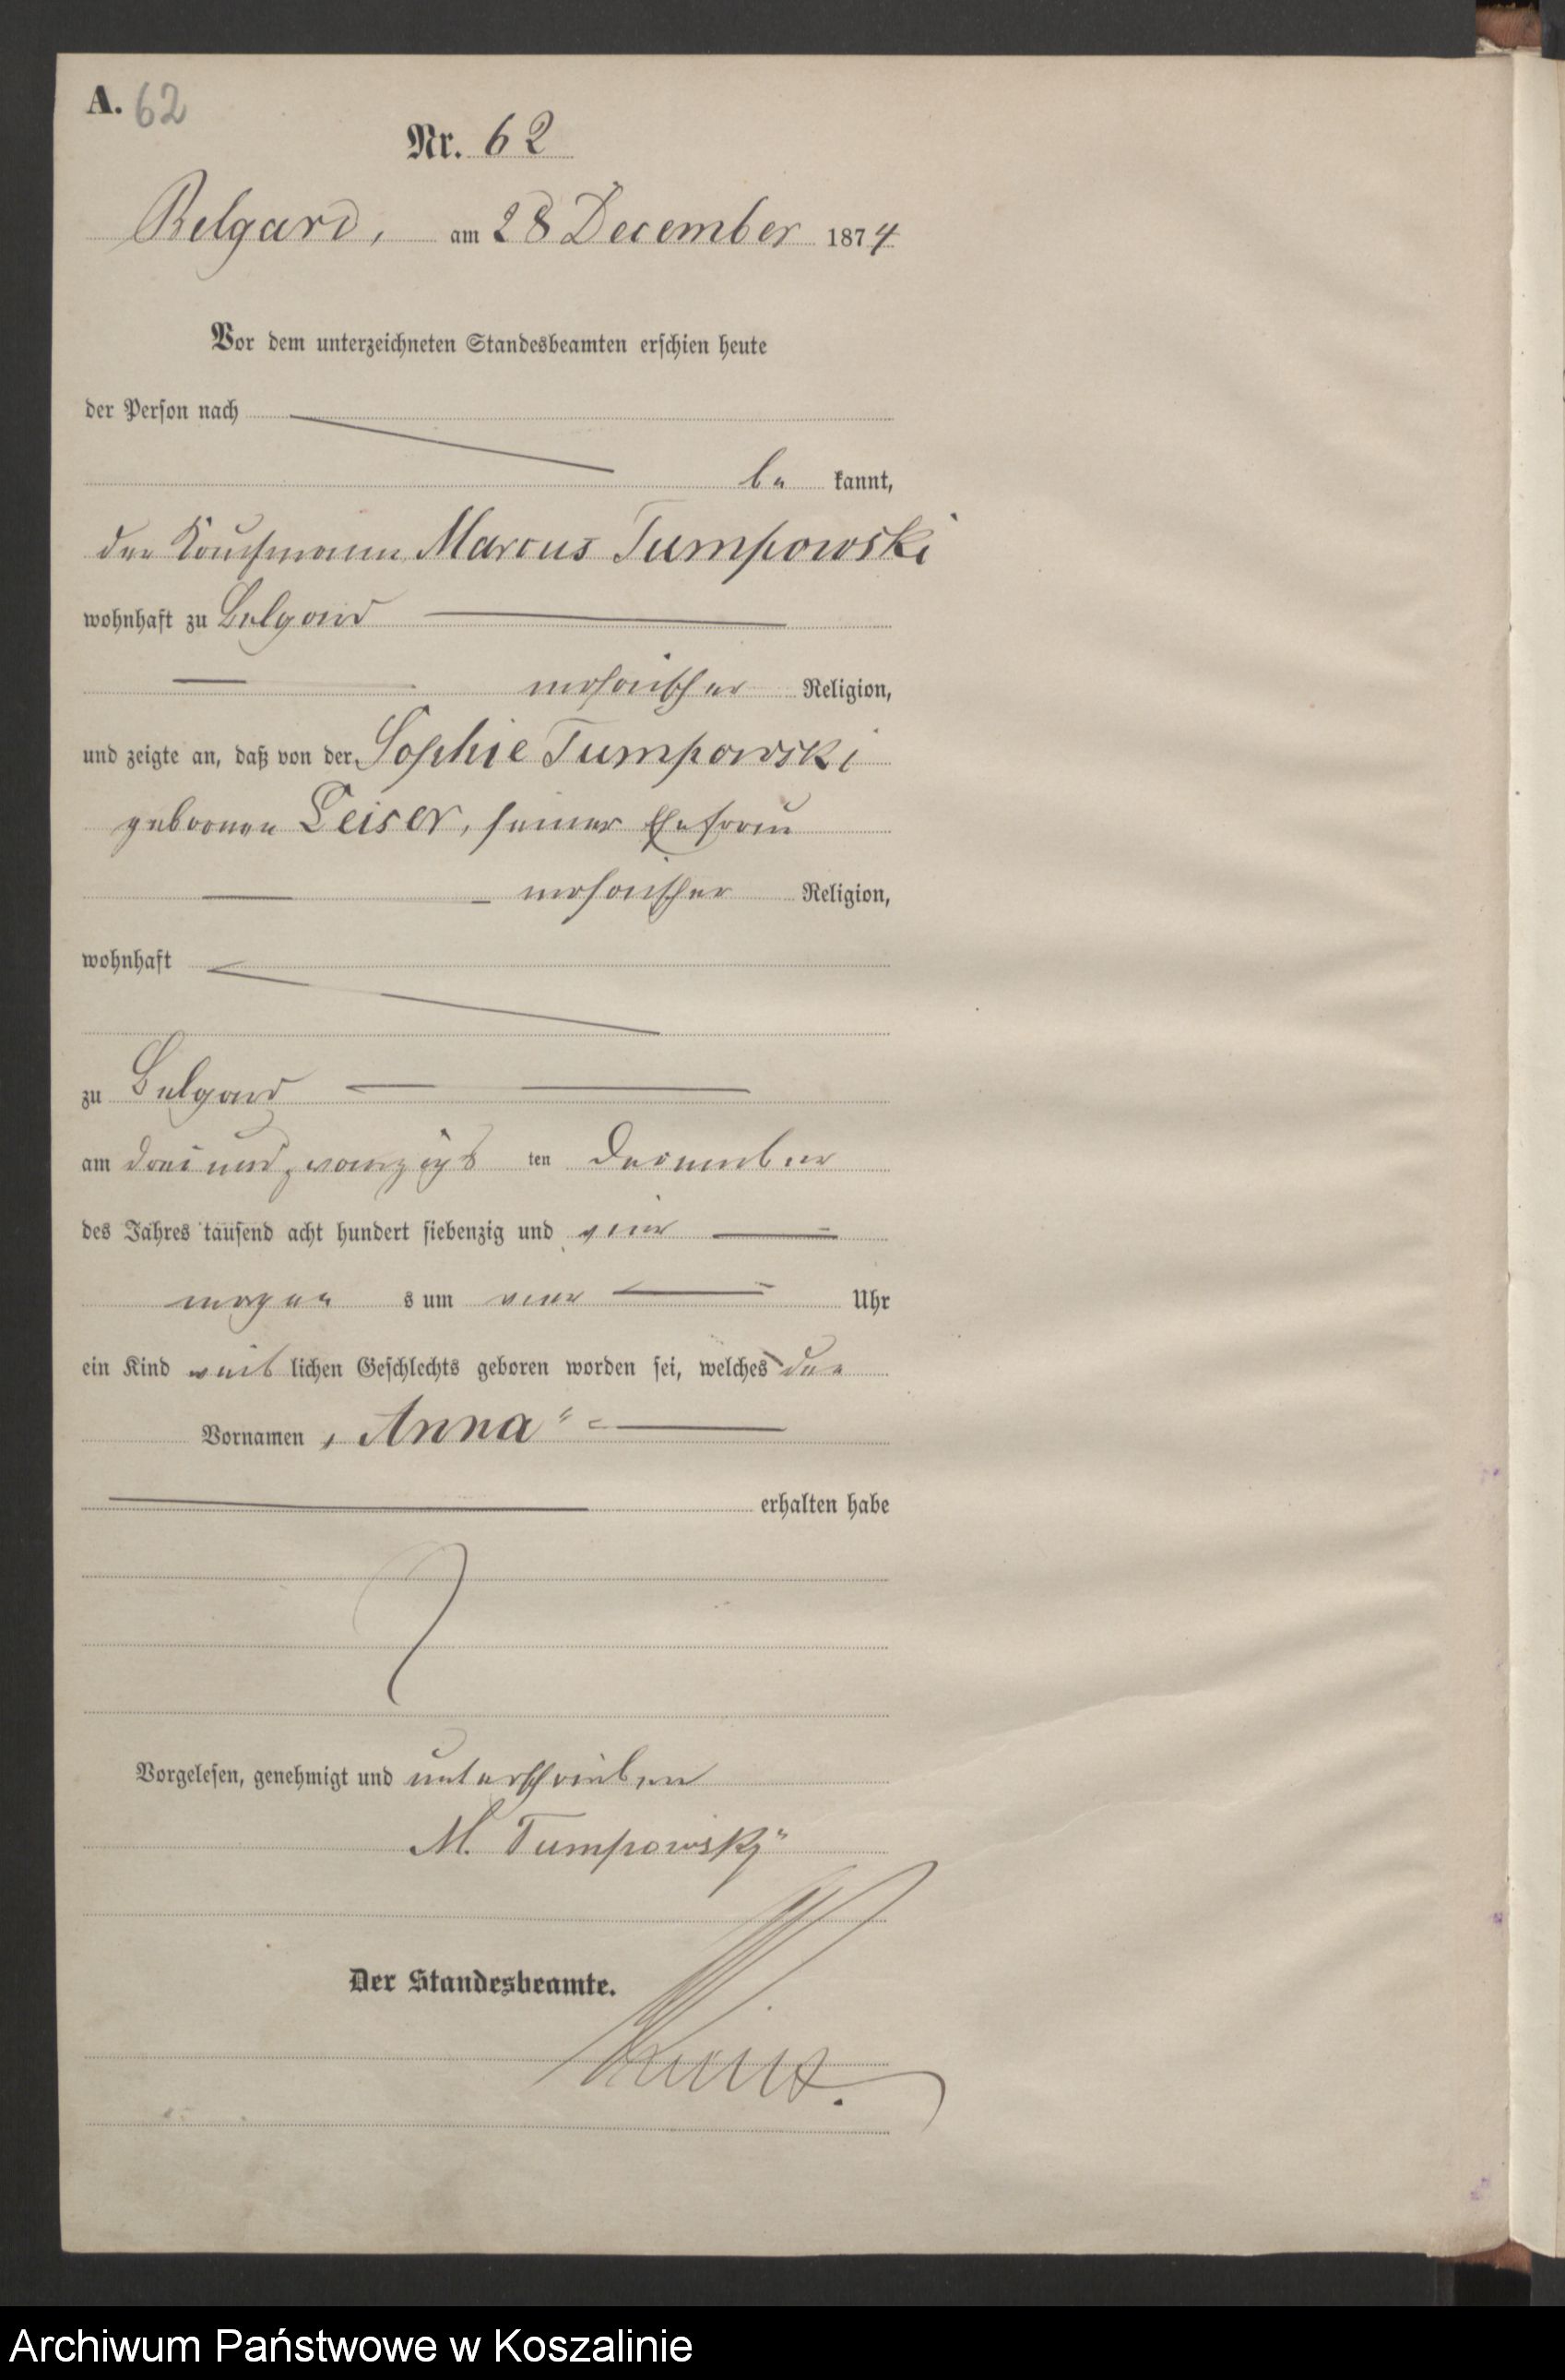 A. 62
Nr. 62
Belgard, am 28 December 1874
Vor dem unterzeichneten Standesbeamten erschien heute
der Person nach
be kannt,
der Kaufmann Marcus Tumpowski
wohnhaft zu Belgard
mosaischer Religion,
und zeigte an, daß von der Sophie Tumpowski
geborenen Leiser, seiner Ehefrau
mosaischer Religion,
wohnhaft
zu Belgard
am drei und zwanzigs ten December
des Jahres tausend acht hundert siebenzig und vier
morgen s um vier Uhr
ein Kind weib lichen Geschlechts geboren worden sei, welches den
Vornamen „Anna“
erhalten habe
Vorgelesen, genehmigt und unterschrieben
M. Tumpowsky
Der Standesbeamte.
Archiwum Państwowe w Koszalinie